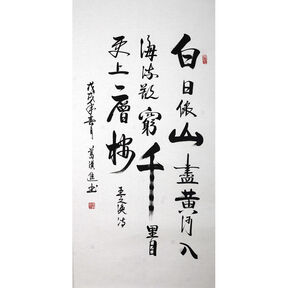 白日依山盡黄河入
海流欲窮千里目
更上一層楼 王之渙诗
戊戌年春月